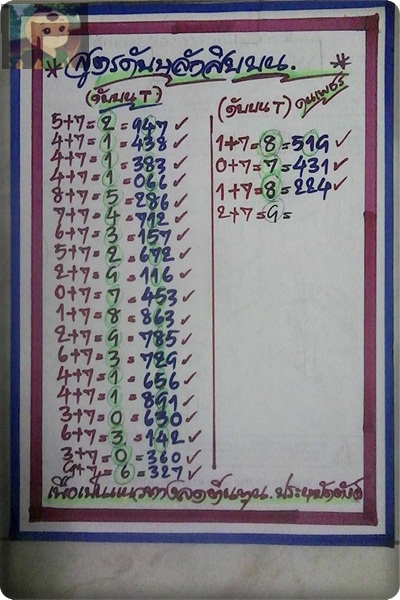 *สูตรดับหลังสิบบน.*
(ดับบนT)
5+7=2=947✓
4+7=1=438✓
4+7=1=383✓
4+7=1=066✓
8+7=5=286✓
7+7=4=712✓
6+7=3=157✓
5+7=2=672✓
2+7=9=116✓
0+7=7=453✓
1+7=8=863✓
2+7=9=785✓
6+7=3=729✓
4+7=1=656✓
4+7=1=891✓
3+7=0=630✓
6+7=3=142✓
3+7=0=360✓
9+7=6=327✓
(ดับบนT) คนเพชร
1+7=8=519✓
0+7=7=431✓
1+7=8=224✓
2+7=9=
เพื่อเป็นแนวทางลดต้นทุน.